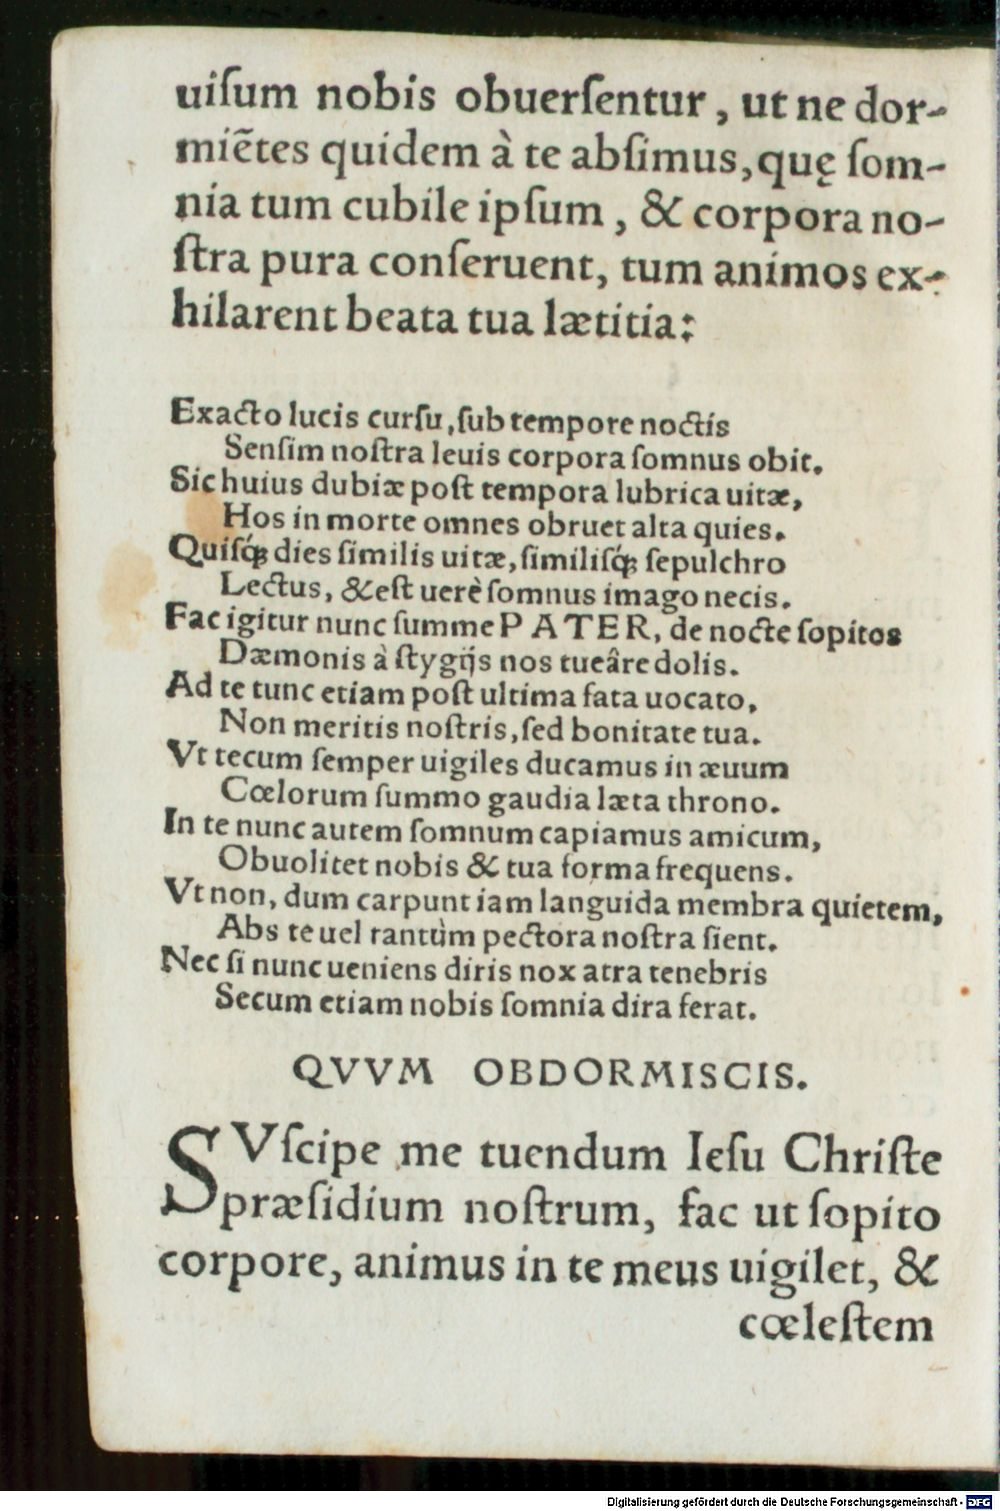 uiſum nobis obuerſentur, ut ne dor-
miētes quidem à te abſimus, quę ſom-
nia tum cubile ipſum, & corpora no-
ſtra pura conſeruent, tum animos ex-
hilarent beata tua lætitia:
Exacto lucis curſu, ſub tempore noctis
Senſim noſtra leuis corpora ſomnus obit.
Sic huius dubiæ poſt tempora lubrica uitæ,
Hos in morte omnes obruet alta quies.
Quiſq́ꝫ dies ſimilis uitæ, ſimiliſq́ꝫ ſepulchro
Lectus, & eſt uerè ſomnus imago necis.
Fac igitur nunc ſumme PATER, de nocte ſopitos
Dæmonis à ſtygijs nos tueâre dolis.
Ad te tunc etiam poſt ultima fata uocato,
Non meritis noſtris, ſed bonitate tua.
Vt tecum ſemper uigiles ducamus in æuum
Cœlorum ſummo gaudia læta throno.
In te nunc autem ſomnum capiamus amicum,
Obuolitet nobis & tua forma frequens.
Vt non, dum carpunt iam languida membra quietem,
Abs te uel tantùm pectora noſtra ſient.
Nec ſi nunc ueniens diris nox atra tenebris
Secum etiam nobis ſomnia dira ferat.
QVVM OBDORMISCIS.
SVſcipe me tuendum Ieſu Chriſte
præſidium noſtrum, fac ut ſopito
corpore, animus in te meus uigilet, &
cœleſtem
Digitalisierung gefördert durch die Deutsche Forschungsgemeinschaft - DFG